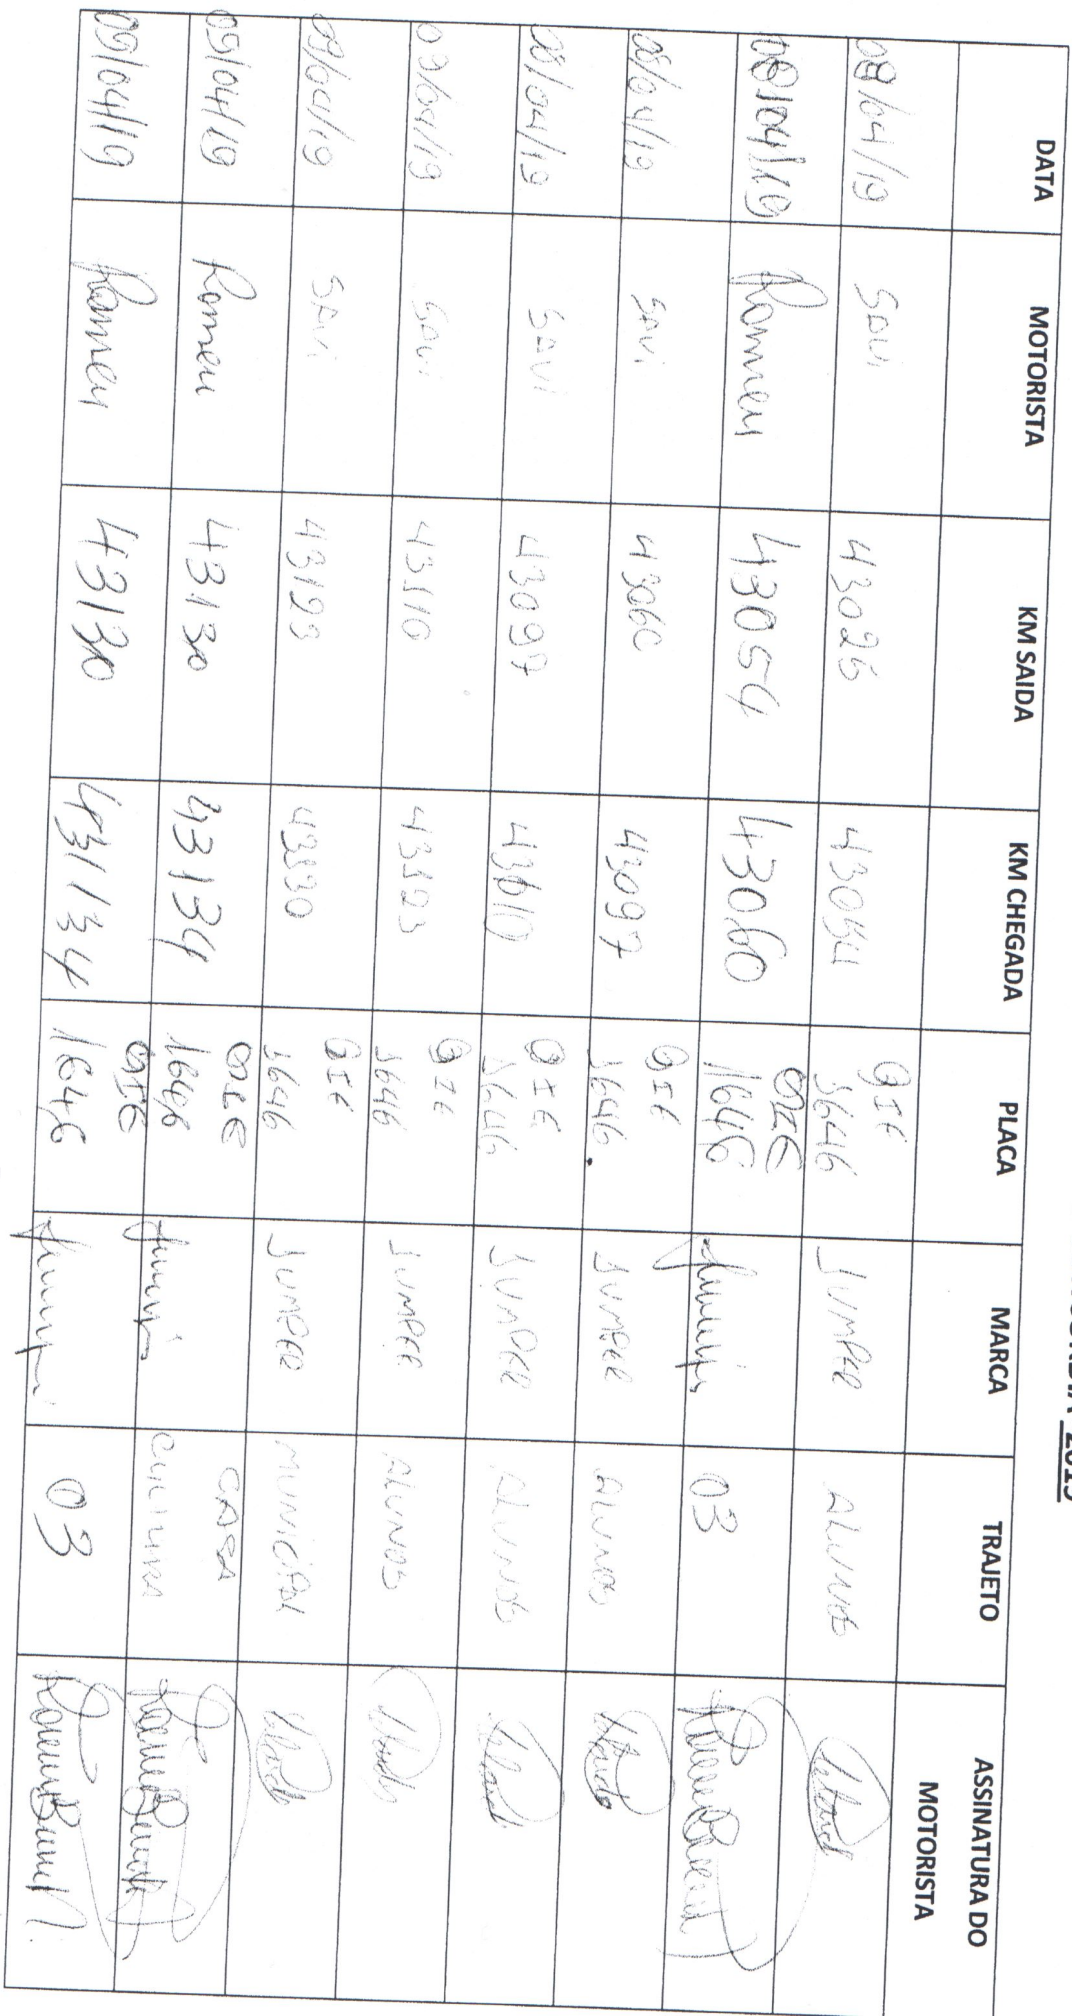 2019
DATA MOTORISTA KM SAIDA KM CHEGADA PLACA MARCA TRAJETO ASSINATURA DO MOTORISTA
08/04/19 SAVI 43026 43054 QIE 1646 JUMPER ALUNOS
08/04/19 Romeu 43054 43060 QIE 1646 03
08/04/19 SAVI 43060 43097 QIE 1646 JUMPER ALUNOS
08/04/19 SAVI 43097 43110 QIE 1646 JUMPER ALUNOS
09/04/19 SAVI 43110 43123 QIE 1646 JUMPER ALUNOS
09/04/19 SAVI 43123 43130 QIE 1646 JUMPER MUNICIPAL
09/04/19 Romeu 43130 43134 QIE 1646 CASA CULTURA
09/04/19 Romeu 43130 43134 QIE 1646 03